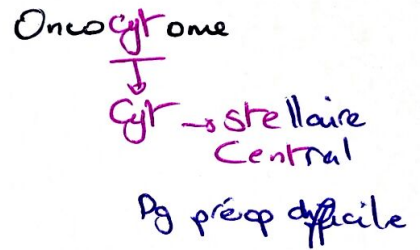 Oncocytome
Cyt → stellaire
Central
Dg préop difficile